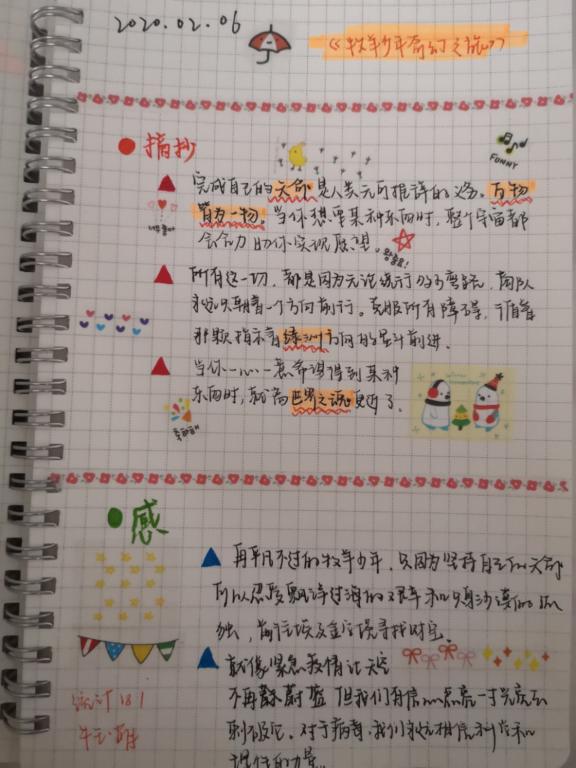 2020.02.06
《牧羊少年奇幻之旅》
摘抄
FUNNY
完成自己的天命是人类无可推辞的义务。万物
皆为一物。当你想要某种东西时,整个宇宙都
会合力助你实现愿望。
所有这一切,都是因为无论绕行多少弯路,商队
总是朝着一个方向前行。克服所有障碍,循着
那颗指示着绿洲方向的星斗前进。
当你一心一意希望得到某种
东西时,就离世界之魂更近了。
感
再平凡不过的牧羊少年,只因为坚持自己的天命
可以忍受飘洋过海的艰辛和只身沙漠的孤
独,前往埃及金字塔寻找财宝。
就像紧急疫情让天空
不再蔚蓝 但我们有信心点亮一丁光去
对于病毒,我们
的力量。
统计181